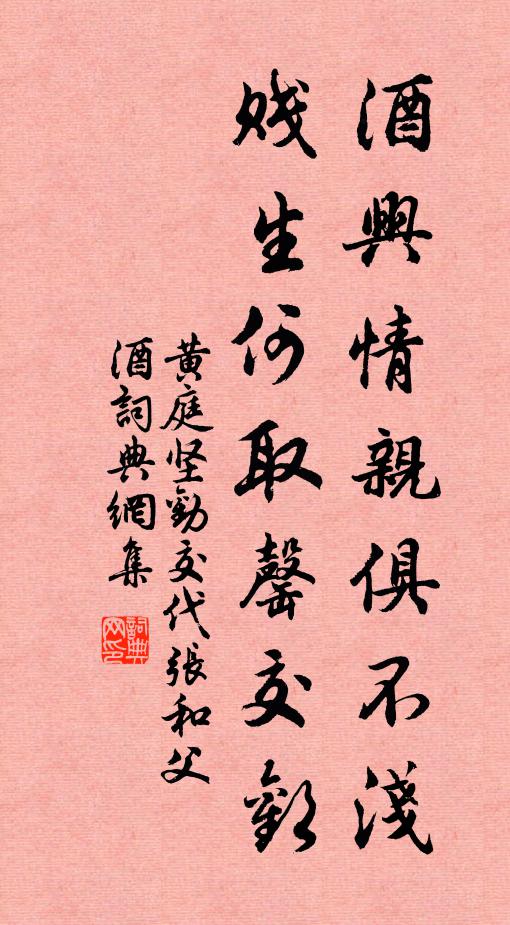 酒興情親俱不淺
賤生何取罄交歡
黄庭坚勸交代張和父
酒詞典網集
詞典
网印